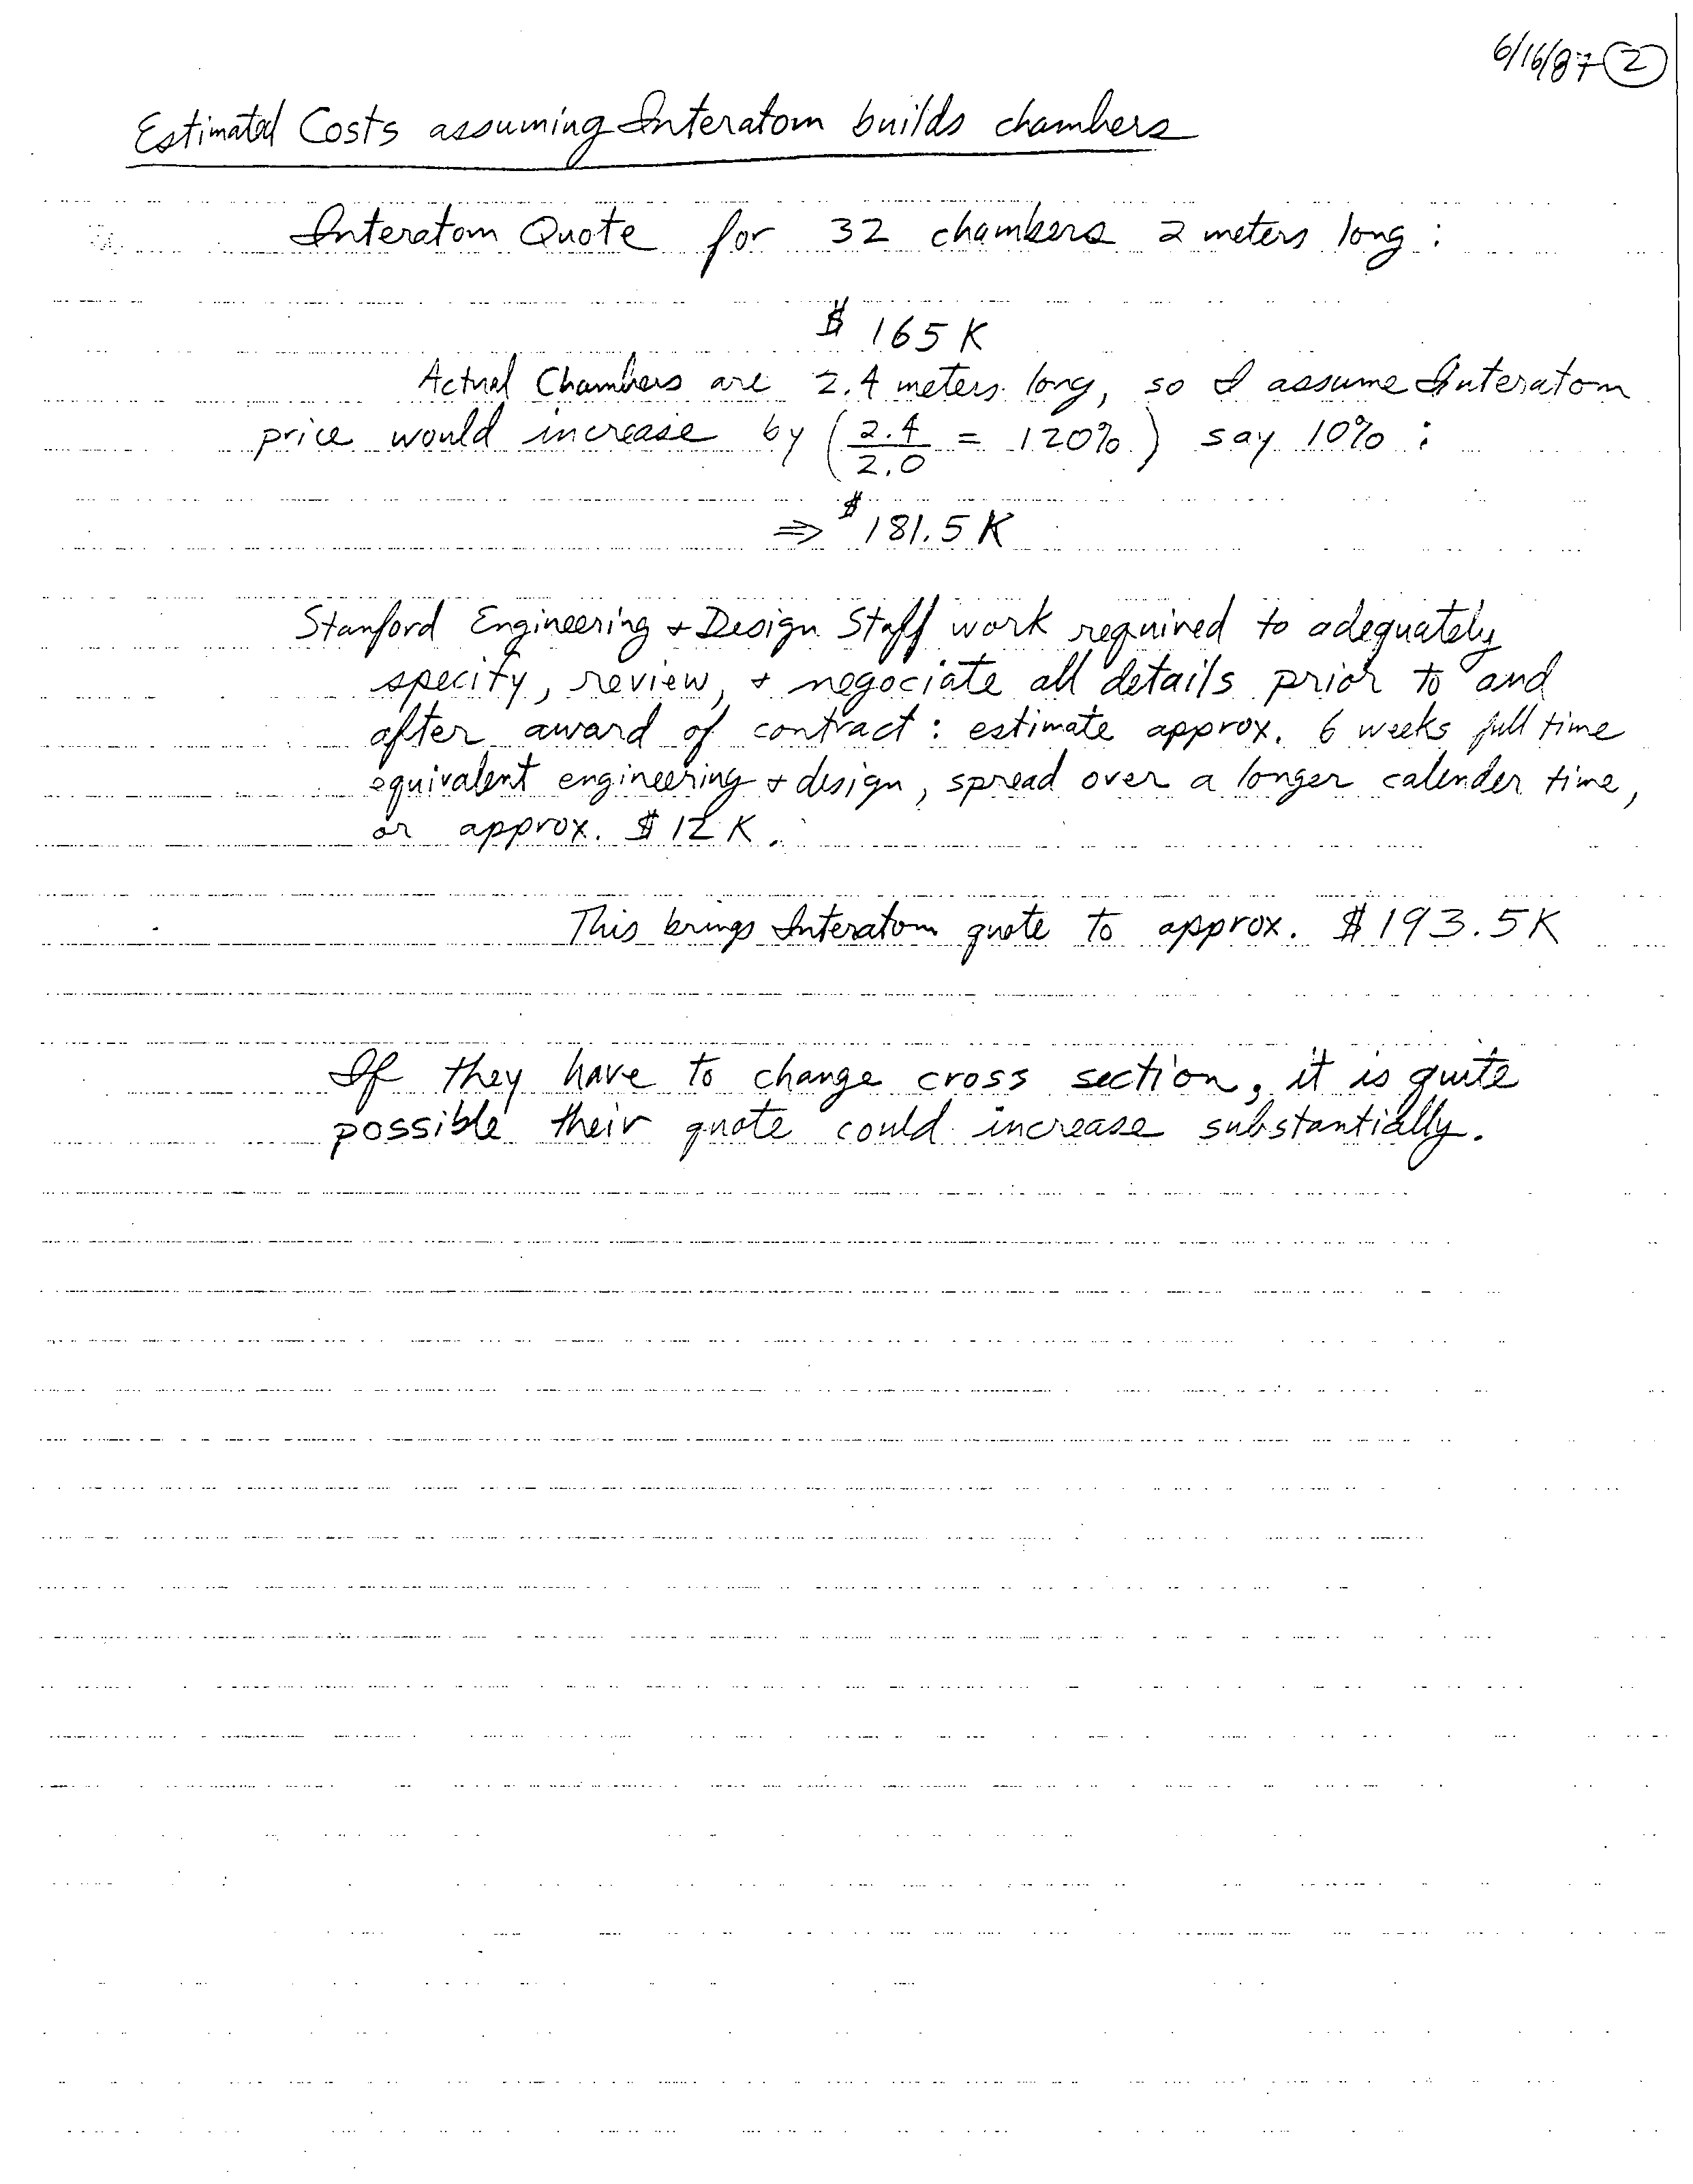 6/16/87 2
Estimated Costs assuming Interatom builds chambers
Interatom Quote for 32 chambers 2 meters long :
$ 165 K
Actual Chambers are 2.4 meters long, so I assume Interatom
price would increase by (2.4/2.0 = 120%) say 10% :
⇒ $ 181.5 K
Stanford Engineering + Design Staff work required to adequately
specify, review, + negociate all details prior to and
after award of contract : estimate approx. 6 weeks full time
equivalent engineering + design, spread over a longer calender time,
or approx. $ 12 K.
This brings Interatom quote to approx. $ 193.5 K
If they have to change cross section, it is quite
possible their quote could increase substantially.